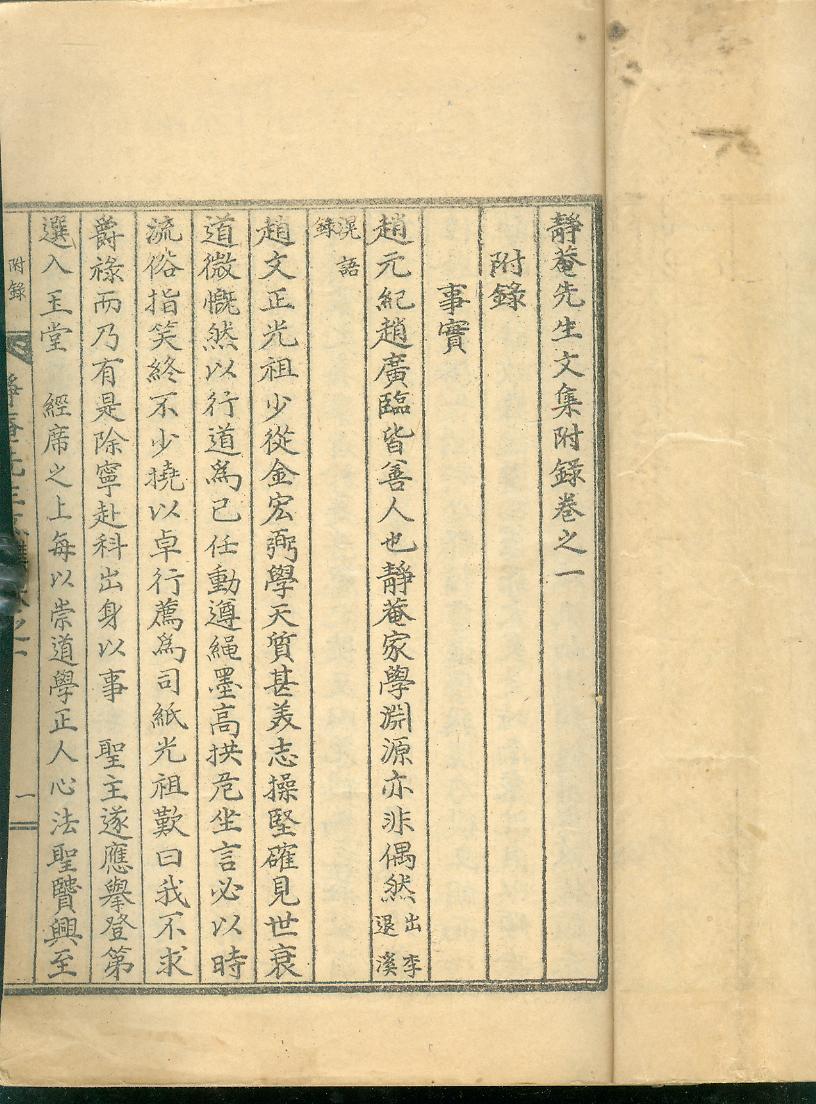 靜菴先生文集附錄卷之一
附錄
事實
趙元紀趙廣臨皆善人也靜菴家學淵源亦非偶然出李退溪
滉語錄
趙文正光祖少從金宏弼學天質甚美志操堅確見世衰
道微慨然以行道爲己任動遵繩墨高拱危坐言必以時
流俗指笑終不少撓以卓行薦爲司紙光祖歎曰我不求
爵祿而乃有是除寧赴科出身以事 聖主遂應擧登第
選入玉堂 經席之上每以崇道學正人心法聖贒興至
附錄
一